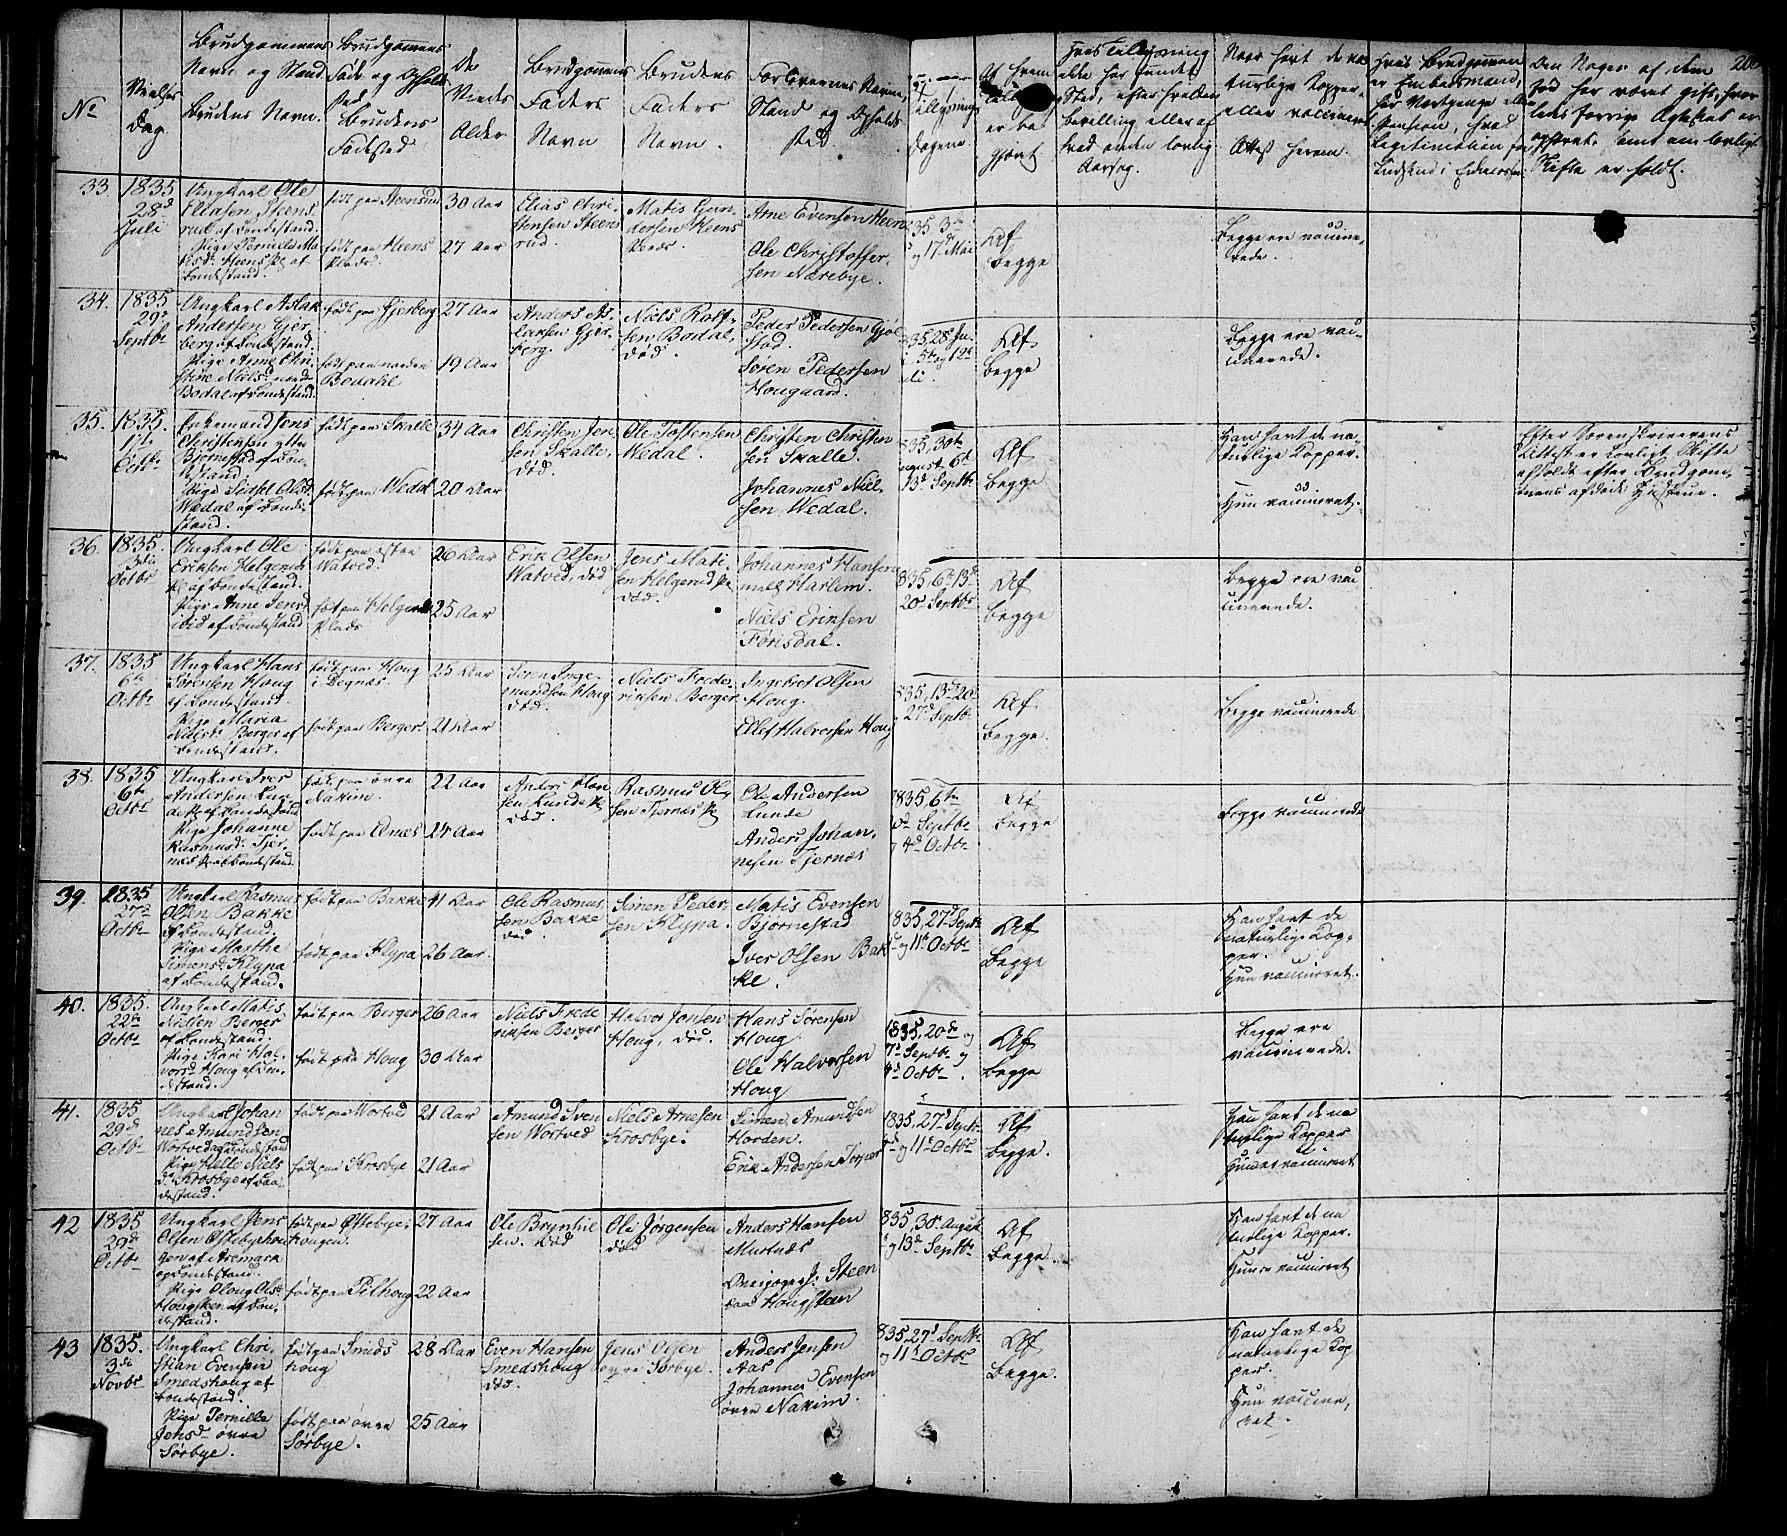 No
Vielses
Dag.
Brudgommens
Navn og Stand.
Brudens Navn.
Brudgommens
Føde og Opholds
sted
Brudens
Fødested.
De
Viedes
Alder
Brudgommens
Faders
Navn
Brudens
Faders
Navn.
Forlovernes Navne,
Stand og Opholds
sted
Tillysnings
dagene.
Af hvem
er be
gjært
Hvis Tillysning
ikke har fundet
Sted, efter hvilken
bevilling eller af
hvad anden lovlig
Aarsag.
Naar havt de na
turlige Kopper
eller vaccineret
Attest herom.
Hvis Brudgommen
er Embedsmand,
har Vartpenge eller
Pension, hvad
Legitimation for
Den Nogen af dem
før har været gift, hvor
ledes forrige Ægteskab er
ophævet, samt om lovligt
Skifte er holdt.
200
33
1835
28d
Juli
Ungkarl Ole
Eliasen Steens
rud af Bondestand.
Pige Pernille Ma
tisd. Heens Pl af
Bondestand.
født paa Steensrud
født paa Heens
Plads.
30 Aar
27 Aar
Elias Chri
stensen Steens
rud.
Matis Gun
dersen Heens
Plads.
Arne Evensen Heen
Ole Christoffer
sen Narebye.
835 3de
og 17d Mai
Af
begge
Begge ere vaccine
rede.
34.
1835
29d
Septbr
Ungkarl Aslak
Andersen Gjer
berg af Bondestand.
Pige Anne Chri
stine Nielsd. nordre
Bodal af Bondestand.
født paa Gjerberg
født paa nordre
Bodahl
27 Aar
19 Aar
Anders As
laksen Gjer
berg.
Niels Rolf
sen Bodal,
død.
Peder Pedersen Gjøl
stad.
Søren Pedersen
Hougaard.
835, 28d Ju
5te og 12te
Juli.
Af
begge
Begge ere vac
cinerede.
35.
1835.
1ste
Octbr
Enkemand Jens
Christensen ytter
Bjørnestad af Bon
destand.
Pige Sidsel Olsd.
Wedal af Bonde
stand.
født paa Skalle
født paa Wedal
34 Aar
20 Aar
Christen Jen
sen Skalle,
død.
Ole Tostensen
Wedal.
Christen Christen
sen Skalle.
Johannes Niel
sen Wedal.
835, 30te
August 6te
13d Septbr
Af
begge
Han havt de na
turlige Kopper.
Hun vaccineret.
Efter Sorenskriverens
Attest er lovligt Skifte
afholdt efter Brudgom
mens afdøde Hustrue.
36.
1835.
3die
Octbr
Ungkarl Ole
Eriksen Helgerud
Pl af Bondestand.
Pige Anne Jensd
ibid af Bondestand
født paa østre
Watved.
født paa Helgerud
Plads
26 Aar
25 Aar
Erik Olsen
Watved, død
Jens Mati
sen Helgerud Pl
død.
Johannes Hansen
Harlem.
Niels Eriksen
Førisdal.
835, 6te 13d
20d Septbr
Af
begge
Begge ere vac
cinerede.
37.
1835
6te
Octbr
Ungkarl Hans
Sørensen Houg
af Bondestand.
Pige Maria
Nielsd. Berger af
Bondestand.
født paa Houg
i Degnæs.
født paa Berger.
25 Aar
21 Aar
Søren Inge
mundsen Houg
død.
Niels Frede
riksen Berger
Ingebret Olsen
Houg.
Olef Halvorsen Houg
835, 13d 20
og 27d Septbr
Af
begge.
Begge vaccinerede
38.
1835
6te
Octbr
Ungkarl Iver
Andersen Lun
de Pl af Bondestand
Pige Johanne
Rasmusd. Tjer
næs Pl af Bondestand.
født paa øvre
Nakim.
født paa Elnæs
22 Aar
24 Aar
Anders Han
sen Lunde Pl
død.
Rasmus Ol
sen Tjernæs Pl
Ole Andersen
Lunde
Anders Johan
nesen Tjernæs
1835, 6te
Septbr
og 4d Octbr
Af
begge
Begge vaccinerede
39.
1835
27d
Octbr
Ungkarl Rasmus
Olsen Bakke
af Bondestand.
Pige Marthe
Simensd. Klypa
af Bondestand.
født paa Bakke
født paa Klypa
41 Aar
26 Aar.
Ole Rasmus
sen Bakke
død.
Simen Peder
sen Klypa.
Matis Evensen
Bjørnestad
Iver Olsen Bak
ke.
1835, 27d Septbr
og 11te Octbr
Af
begge
Han havt de
naturlige Kop
per.
Hun vaccineret.
40.
1835.
22de
Octbr
Ungkarl Matis
Nielsen Berger
af Bondestand.
Pige Kari Hal
vorsd. Houg af Bon
destand.
født paa Berger
født paa Houg
26 Aar
30 Aar
Niels Frede
riksen Berger
Halvor Jonsen
Houg, død.
Hans Sørensen
Houg
Ole Halvorsen
Houg
1835, 20de og
27d Septbr og
4d Octbr.
Af
begge
Begge ere
vaccinerede.
41.
1835
29d
Octbr
Ungkarl Johan
nes Amundsen
Wortved af Bondestand
Pige Helle Niels
d. Krosbye af Bon
destand.
født paa Wortved
født paa Krosbye
21 Aar
21 Aar
Amund Iven
sen Wortved
Niels Arnesen
Krosbye.
Simen Amundsen
Horden.
Erik Andersen Torper
1835, 27d Septbr
og 11te Octbr
Af
begge.
Han havt de na
turlige Kopper
Hun er vaccineret
42
1835
29d
Octbr
Ungkarl Jens
Olsen Østebyehou
gen af Aremark
og Bondestand.
Pige Oloug Olsd
Hougsteen af Bon
destand.
født paa Østebye
hougen.
født paa Pilhoug
27 Aar
22 Aar
Ole Brynhil
sen. død
Ole Jørgensen
død
Anders Hansen
Musnæs
Steen
paa Hougsteen
835, 30. August
og 13d Septbr
Af
begge.
Han havt de na
turlige Kopper.
Hun er vaccineret
43
1835.
3die
Novbr
Ungkarl Chri
stian Evensen
Smedshoug af
Bondestand.
Pige Pernille
Jensd. øvre
Sørbye.
født paa Smeds
houg
født paa øvre
Sørbye.
28 Aar
25 Aar
Even Hansen
Smedshoug
død.
Jens Olsen
øvre Sørbye.
Anders Jensen
Aas
Johannes Evensen
øvre Nakim.
835, 27d Septbr
og 11te Octbr
Af
begge.
Han havt de
naturlige Kop
per.
Hun vaccine
ret.